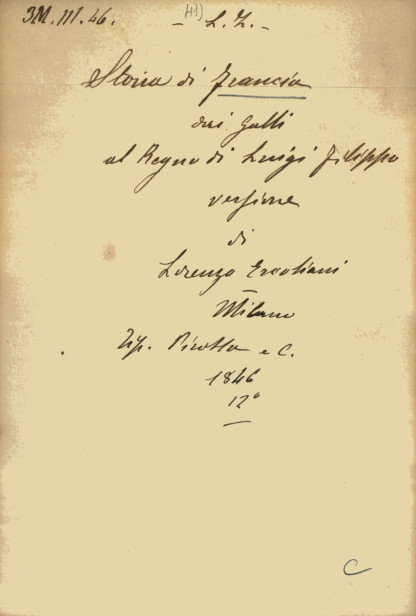 3M. III. 46.
41)
- L. Z. -
Storia di Francia
dai Galli
al Regno di Luigi Filippo
versione
di
Lorenzo Ercoliani
Milano
Tip. Pirotta e C.
1846
12°
C